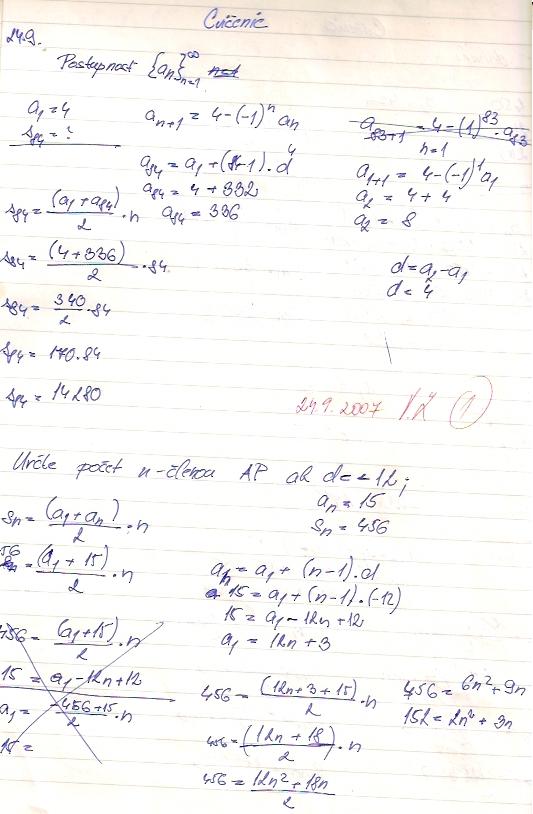 Cvičenie
24.9.
Postupnosť {an}∞n=1
a1 = 4
s84 = ?
an+1 = 4-(-1)^n an
a83+1 = 4-(1)^83 · a83
n=1
a84 = a1 + (84-1) · d
a84 = 4 + 332
a84 = 336
a1+1 = 4-(-1)^1 a1
a2 = 4 + 4
a2 = 8
s84 = (a1 + a84)/2 · n
s84 = (4+336)/2 · 84
d = a2 - a1
d = 4
s84 = 340/2 · 84
s84 = 170 · 84
s84 = 14280
24.9.2007
1
Určte počet n-členov AP ak d = -12;
an = 15
sn = 456
sn = (a1 + an)/2 · n
(a1 + 15)/2 · n
an = a1 + (n-1) · d
15 = a1 + (n-1) · (-12)
15 = a1 - 12n + 12
a1 = 12n + 3
456 = (a1+15)/2 · n
15 = a1 - 12n + 12
a1 = -456+15/2 · n
15 =
456 = (12n + 3 + 15)/2 · n
456 = (12n + 18)/2 · n
456 = 12n² + 18n/2
456 = 6n² + 9n
152 = 2n² + 3n